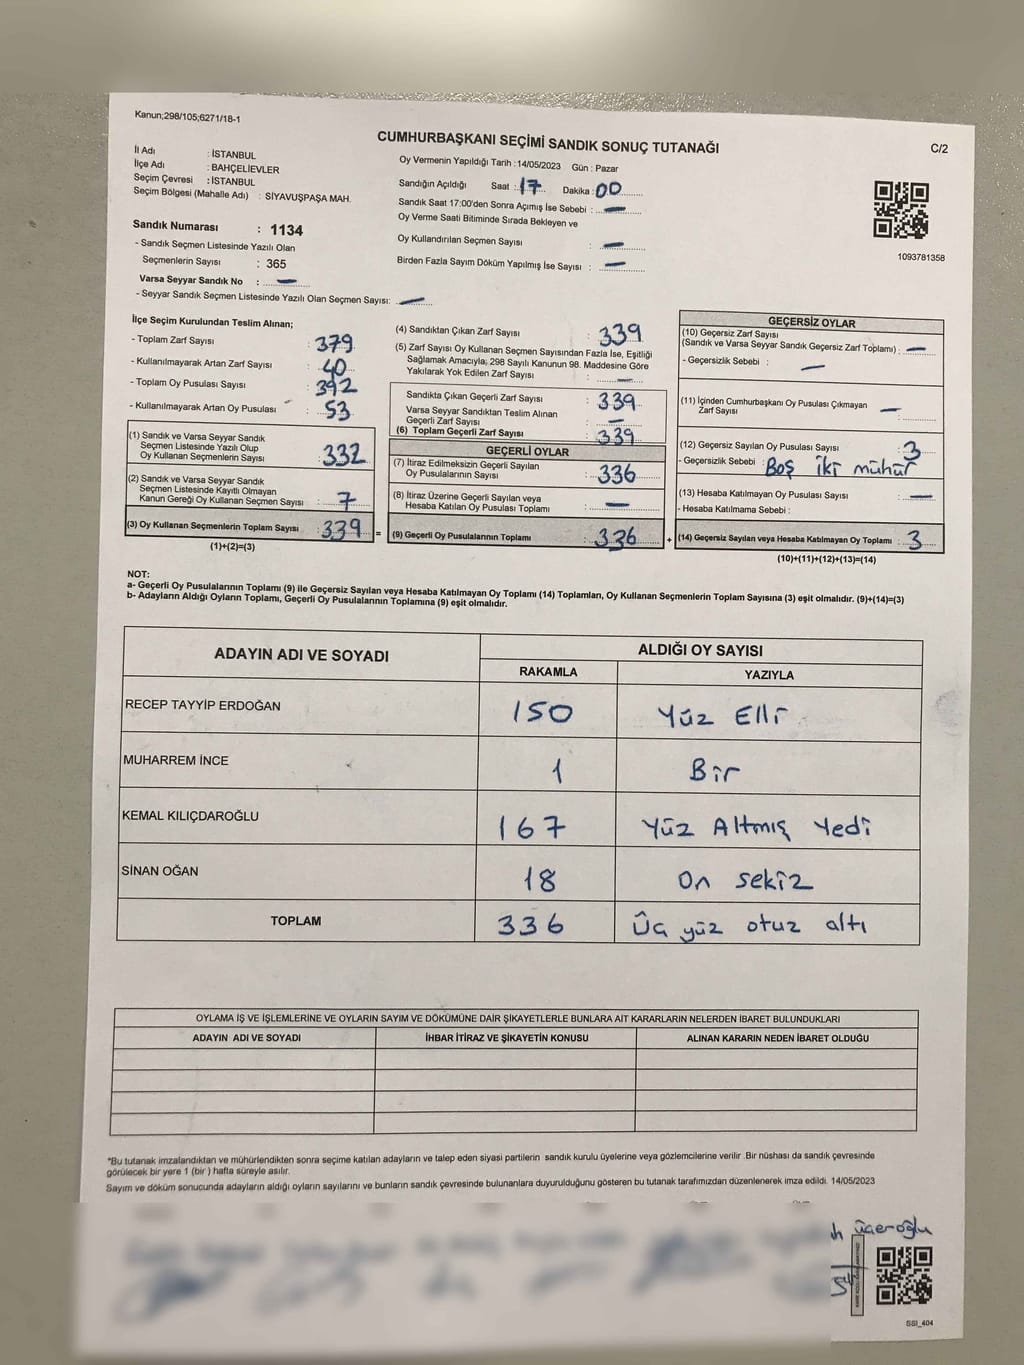 Kanun;298/105;6271/18-1
CUMHURBAŞKANI SEÇİMİ SANDIK SONUÇ TUTANAĞI
C/2
İl Adı : İSTANBUL
İlçe Adı : BAHÇELİEVLER
Seçim Çevresi : İSTANBUL
Seçim Bölgesi (Mahalle Adı) : SİYAVUŞPAŞA MAH.
Sandık Numarası : 1134
- Sandık Seçmen Listesinde Yazılı Olan
Seçmenlerin Sayısı : 365
Varsa Seyyar Sandık No : —
- Seyyar Sandık Seçmen Listesinde Yazılı Olan Seçmen Sayısı: —
Oy Vermenin Yapıldığı Tarih : 14/05/2023 Gün : Pazar
Sandığın Açıldığı Saat : 17 Dakika : 00
Sandık Saat 17:00'den Sonra Açımış İse Sebebi : —
Oy Verme Saati Bitiminde Sırada Bekleyen ve
Oy Kullandırılan Seçmen Sayısı : —
Birden Fazla Sayım Döküm Yapılmış İse Sayısı : —
1093781358
İlçe Seçim Kurulundan Teslim Alınan;
- Toplam Zarf Sayısı : 379
- Kullanılmayarak Artan Zarf Sayısı : 40
- Toplam Oy Pusulası Sayısı : 392
- Kullanılmayarak Artan Oy Pusulası : 53
(1) Sandık ve Varsa Seyyar Sandık
Seçmen Listesinde Yazılı Olup
Oy Kullanan Seçmenlerin Sayısı : 332
(2) Sandık ve Varsa Seyyar Sandık
Seçmen Listesinde Kayıtlı Olmayan
Kanun Gereği Oy Kullanan Seçmen Sayısı : 7
(3) Oy Kullanan Seçmenlerin Toplam Sayısı : 339
(1)+(2)=(3)
=
(4) Sandıktan Çıkan Zarf Sayısı : 339
(5) Zarf Sayısı Oy Kullanan Seçmen Sayısından Fazla İse, Eşitliği
Sağlamak Amacıyla; 298 Sayılı Kanunun 98. Maddesine Göre
Yakılarak Yok Edilen Zarf Sayısı : —
Sandıkta Çıkan Geçerli Zarf Sayısı : 339
Varsa Seyyar Sandıktan Teslim Alınan
Geçerli Zarf Sayısı : —
(6) Toplam Geçerli Zarf Sayısı : 339
GEÇERLİ OYLAR
(7) İtiraz Edilmeksizin Geçerli Sayılan
Oy Pusulalarının Sayısı : 336
(8) İtiraz Üzerine Geçerli Sayılan veya
Hesaba Katılan Oy Pusulası Toplamı : —
(9) Geçerli Oy Pusulalarının Toplamı : 336
+
GEÇERSİZ OYLAR
(10) Geçersiz Zarf Sayısı
(Sandık ve Varsa Seyyar Sandık Geçersiz Zarf Toplamı) : —
- Geçersizlik Sebebi : —
(11) İçinden Cumhurbaşkanı Oy Pusulası Çıkmayan
Zarf Sayısı —
(12) Geçersiz Sayılan Oy Pusulası Sayısı : 3
- Geçersizlik Sebebi : Boş iki mühür
(13) Hesaba Katılmayan Oy Pusulası Sayısı : —
- Hesaba Katılmama Sebebi :
(14) Geçersiz Sayılan veya Hesaba Katılmayan Oy Toplamı : 3
(10)+(11)+(12)+(13)=(14)
NOT:
a- Geçerli Oy Pusulalarının Toplamı (9) ile Geçersiz Sayılan veya Hesaba Katılmayan Oy Toplamı (14) Toplamları, Oy Kullanan Seçmenlerin Toplam Sayısına (3) eşit olmalıdır. (9)+(14)=(3)
b- Adayların Aldığı Oyların Toplamı, Geçerli Oy Pusulalarının Toplamına (9) eşit olmalıdır.
ADAYIN ADI VE SOYADI
ALDIĞI OY SAYISI
RAKAMLA YAZIYLA
RECEP TAYYİP ERDOĞAN 150 Yüz Elli
MUHARREM İNCE 1 Bir
KEMAL KILIÇDAROĞLU 167 Yüz Altmış Yedi
SİNAN OĞAN 18 On sekiz
TOPLAM 336 Üç yüz otuz altı
OYLAMA İŞ VE İŞLEMLERİNE VE OYLARIN SAYIM VE DÖKÜMÜNE DAİR ŞİKAYETLERLE BUNLARA AİT KARARLARIN NELERDEN İBARET BULUNDUKLARI
ADAYIN ADI VE SOYADI İHBAR İTİRAZ VE ŞİKAYETİN KONUSU ALINAN KARARIN NEDEN İBARET OLDUĞU
*Bu tutanak imzalandıktan ve mühürlendikten sonra seçime katılan adayların ve talep eden siyasi partilerin sandık kurulu üyelerine veya gözlemcilerine verilir .Bir nüshası da sandık çevresinde
görülecek bir yere 1 (bir ) hafta süreyle asılır.
Sayım ve döküm sonucunda adayların aldığı oyların sayılarını ve bunların sandık çevresinde bulunanlara duyurulduğunu gösteren bu tutanak tarafımızdan düzenlenerek imza edildi. 14/05/2023
üçeroğlu
SSI_404